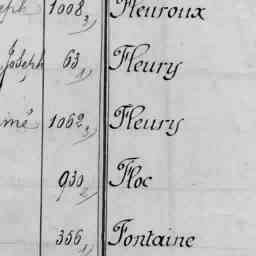 eph 1008 3) Fleuroux
Joseph 63 1) Fleury
imé 1062 3) Fleury
930 2) Floc
356 1) Fontaine